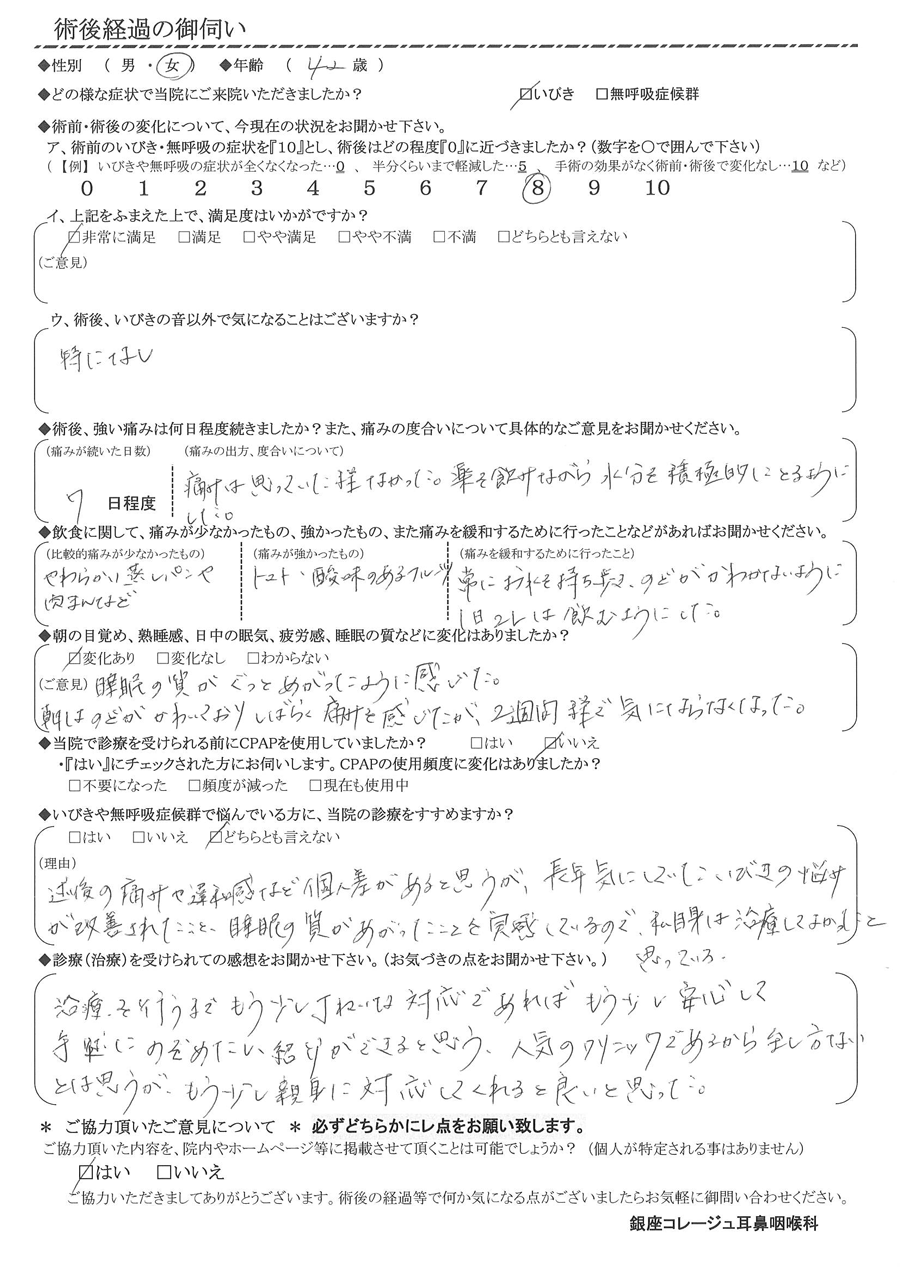 術後経過の御伺い
◆性別 ( 男 ・ 女 ) ◆年齢 ( 42 歳 )
◆どの様な症状で当院にご来院いただきましたか? ☑いびき □無呼吸症候群
◆術前・術後の変化について、今現在の状況をお聞かせ下さい。
ア、術前のいびき・無呼吸の症状を『10』とし、術後はどの程度『0』に近づきましたか?(数字を○で囲んで下さい)
(【例】いびきや無呼吸の症状が全くなくなった…0 、 半分くらいまで軽減した…5 、 手術の効果がなく術前・術後で変化なし…10 など)
0 1 2 3 4 5 6 7 8 9 10
イ、上記をふまえた上で、満足度はいかがですか?
☑非常に満足 □満足 □やや満足 □やや不満 □不満 □どちらとも言えない
(ご意見)
ウ、術後、いびきの音以外で気になることはございますか?
特になし
◆術後、強い痛みは何日程度続きましたか?また、痛みの度合いについて具体的なご意見をお聞かせください。
(痛みが続いた日数) (痛みの出方、度合いについて)
痛みは思っていた様なかった。薬を飲みながら水分を積極的にとるように
7 日程度
した。
◆飲食に関して、痛みが少なかったもの、強かったもの、また痛みを緩和するために行ったことなどがあればお聞かせください。
(比較的痛みが少なかったもの) (痛みが強かったもの) (痛みを緩和するために行ったこと)
やわらかい蒸しパンや トマト、酸味のあるフルーツ 常にお水を持ち歩き、のどがかわかないように
肉まんなど 1日2Lは飲むようにした。
◆朝の目覚め、熟睡感、日中の眠気、疲労感、睡眠の質などに変化はありましたか?
☑変化あり □変化なし □わからない
(ご意見) 睡眠の質がぐっとあがったように感じた。
朝はのどがかわいておりしばらく痛みを感じたが、2週間様で気にならなくなった。
◆当院で診療を受けられる前にCPAPを使用していましたか? □はい ☑いいえ
・『はい』にチェックされた方にお伺いします。CPAPの使用頻度に変化はありましたか?
□不要になった □頻度が減った □現在も使用中
◆いびきや無呼吸症候群で悩んでいる方に、当院の診療をすすめますか?
□はい □いいえ ☑どちらとも言えない
(理由)
術後の痛みや違和感など個人差があると思うが、長年気にしていたいびきの悩み
が改善されたこと、睡眠の質があがったことを実感しているので、私自身は治療してよかったと
◆診療(治療)を受けられての感想をお聞かせ下さい。(お気づきの点をお聞かせ下さい。) 思っている。
治療を行うまでもう少し丁ねいな対応であればもう少し安心して
手術にのぞめたい結もができると思う。人気のクリニックであるから仕方ない
とは思うが、もう少し親身に対応してくれると良いと思った。
* ご協力頂いたご意見について * 必ずどちらかにレ点をお願い致します。
ご協力頂いた内容を、院内やホームページ等に掲載させて頂くことは可能でしょうか? (個人が特定される事はありません)
☑はい □いいえ
ご協力いただきましてありがとうございます。術後の経過等で何か気になる点がございましたらお気軽に御問い合わせください。
銀座コレージュ耳鼻咽喉科